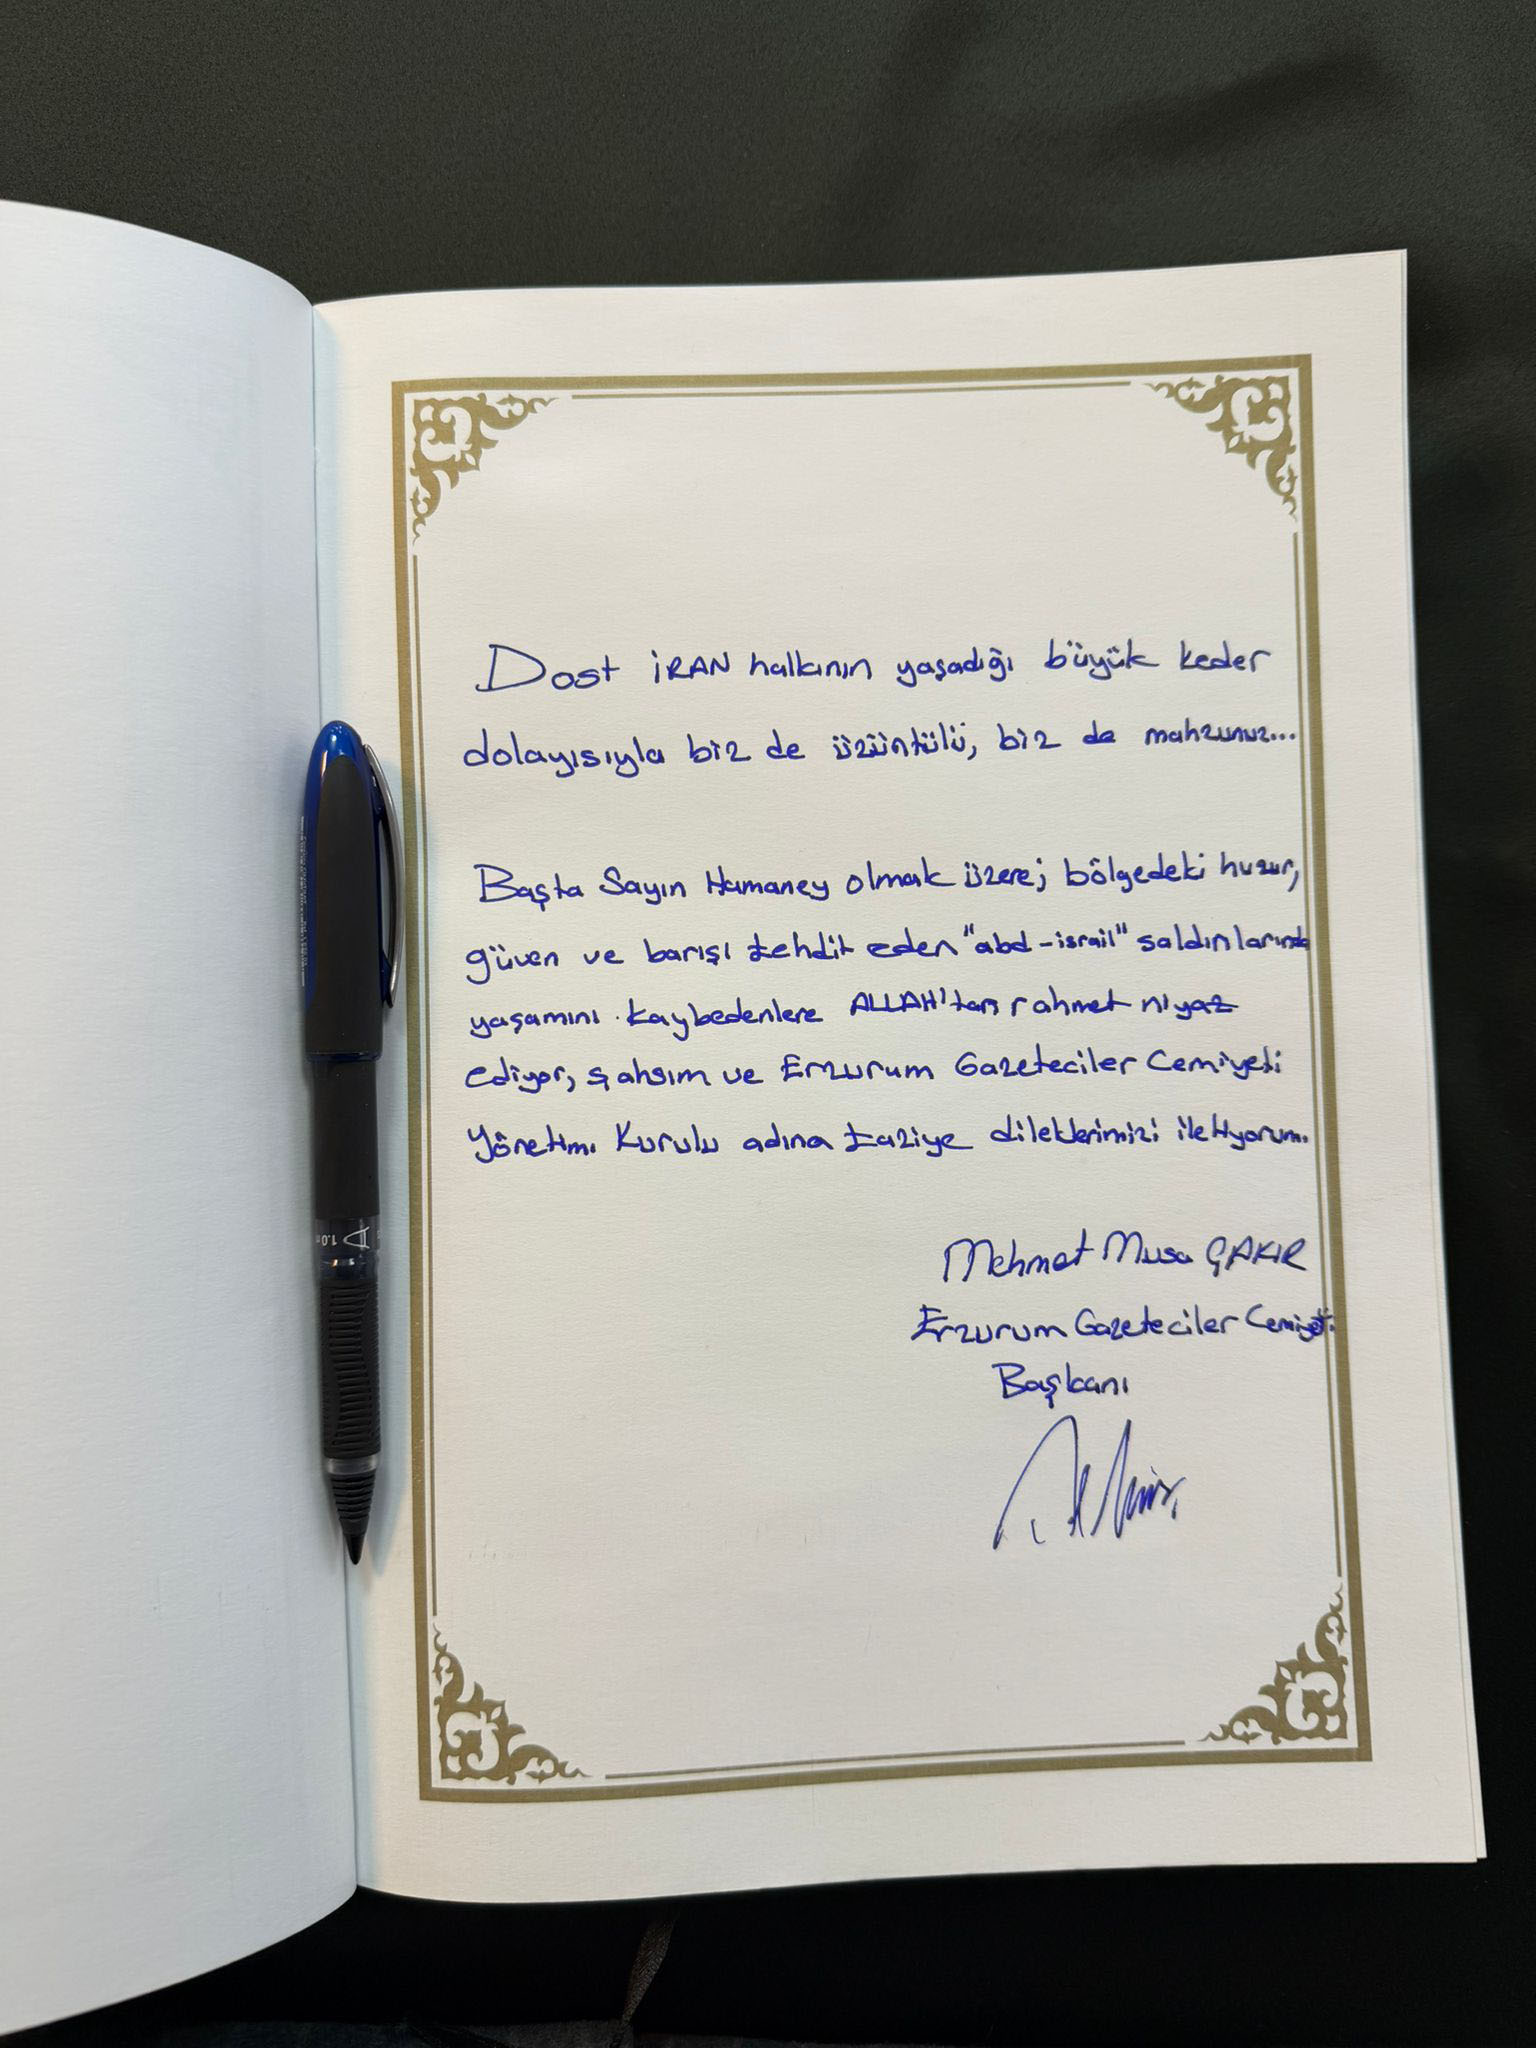 Dost İRAN halkının yaşadığı büyük keder
dolayısıyla biz de üzüntülü, biz de mahzunuz...
Başta Sayın Hamaney olmak üzere; bölgedeki huzur,
güven ve barışı tehdit eden "abd-israil" saldırılarında
yaşamını kaybedenlere ALLAH'tan rahmet niyaz
ediyor, şahsım ve Erzurum Gazeteciler Cemiyeti
Yönetimi Kurulu adına taziye dileklerimizi iletiyorum.
Mehmet Musa ÇAKIR
Erzurum Gazeteciler Cemiyeti
Başkanı
1.0